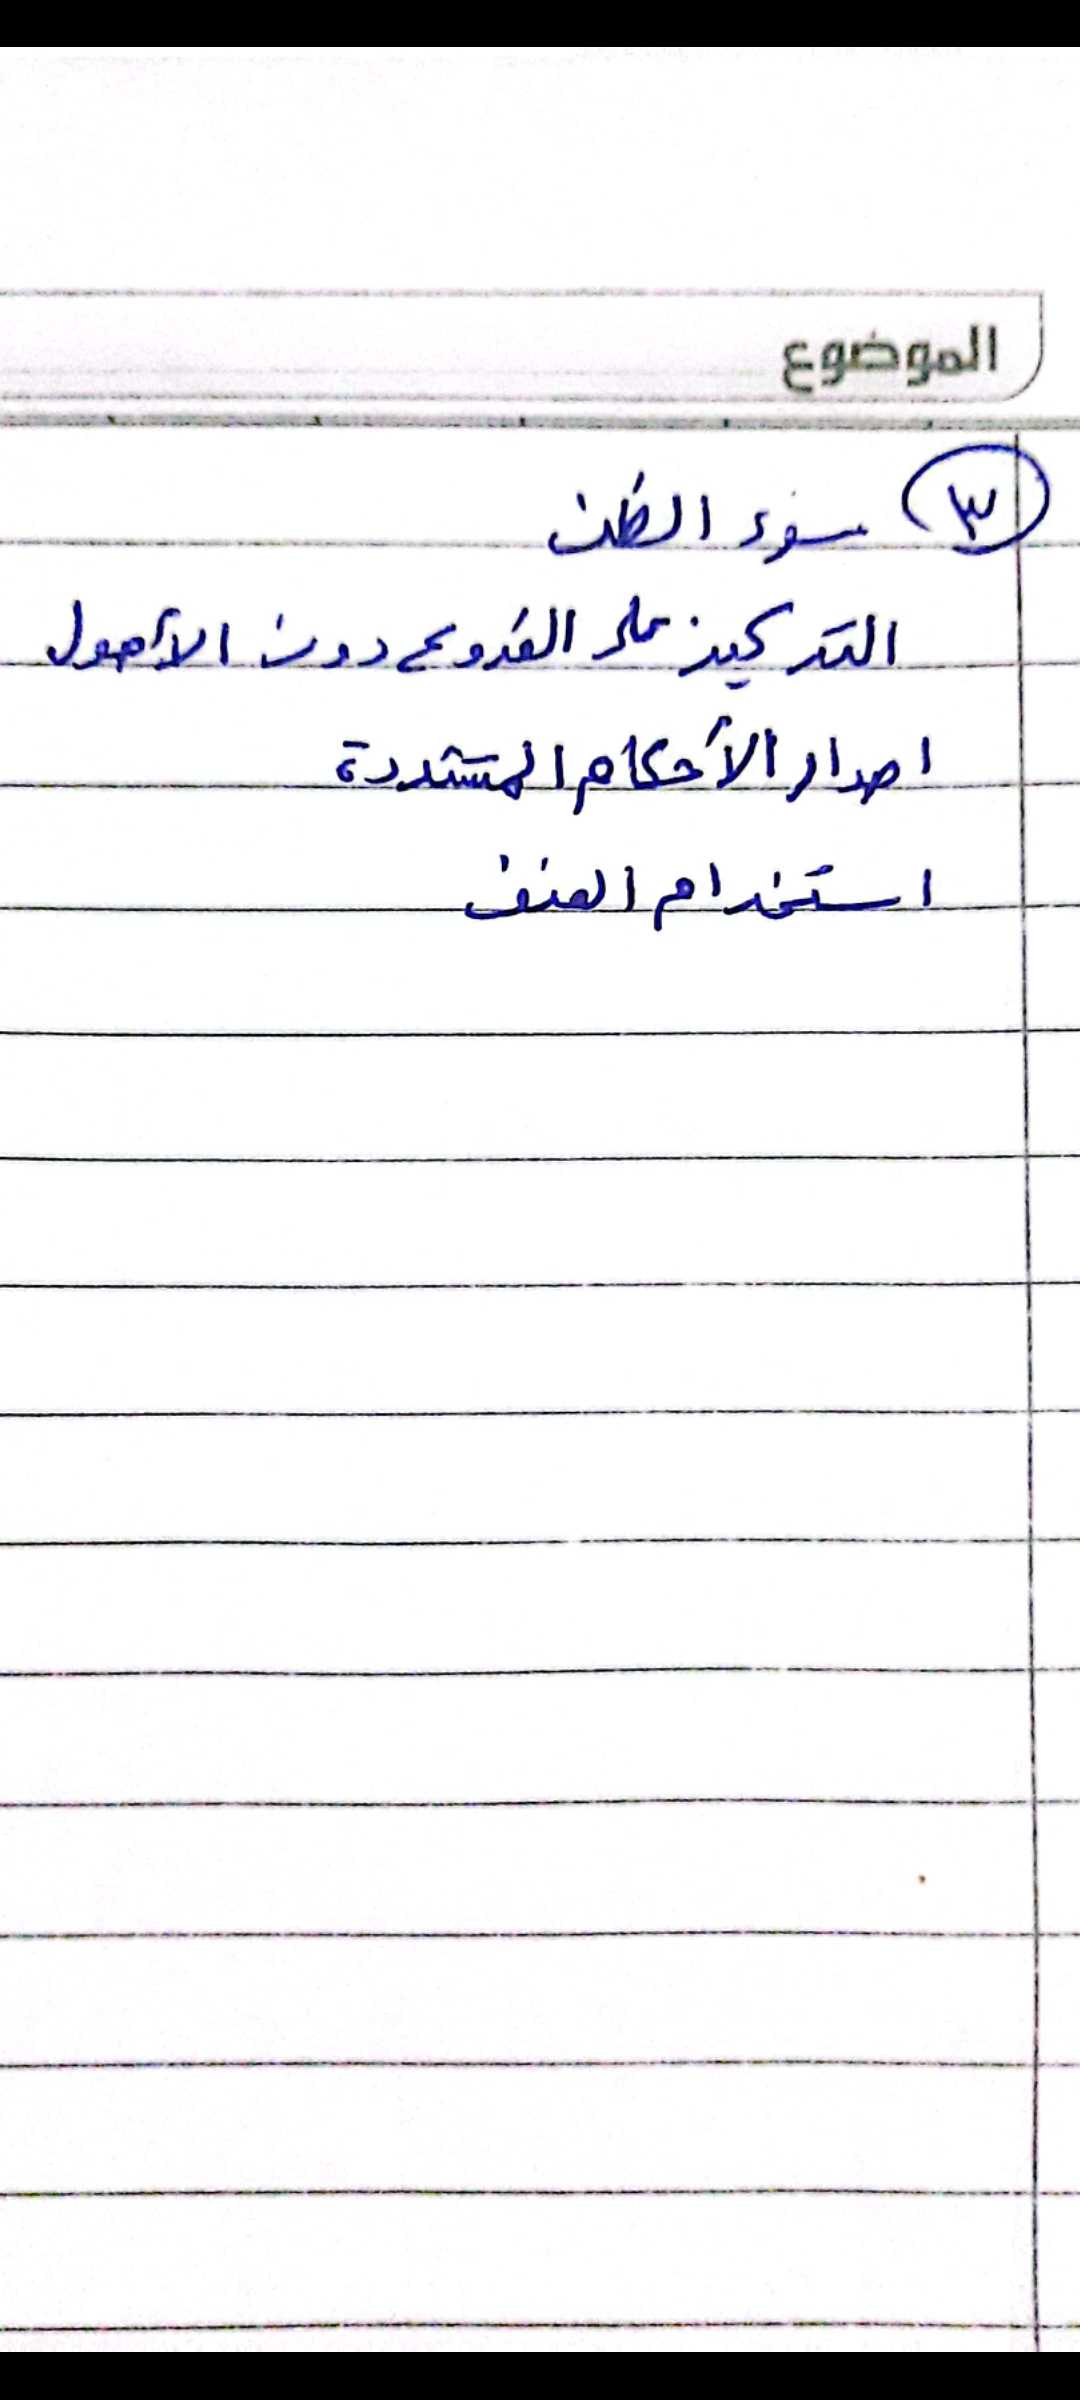 الموضوع
٣ سوء الظن
التركيز على الفروع دون الأصول
اصدار الأحكام المتشددة
استخدام العنف